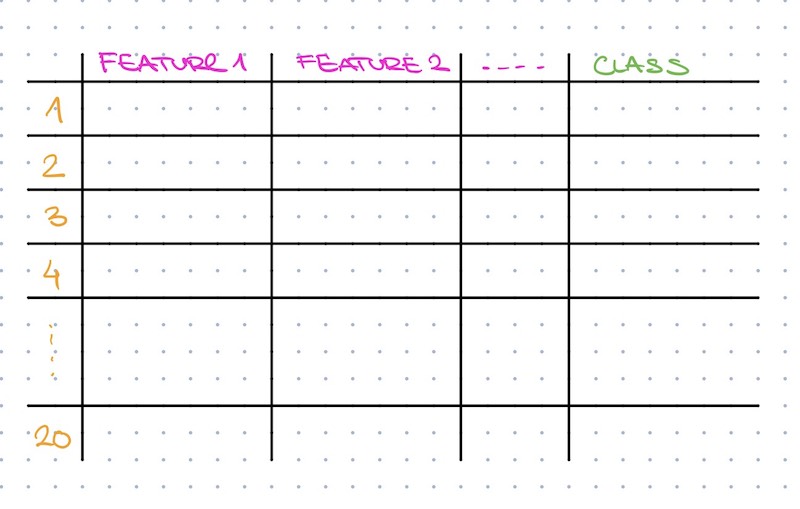 FEATURE 1 FEATURE 2 ---- CLASS
1
2
3
4
⋮
20